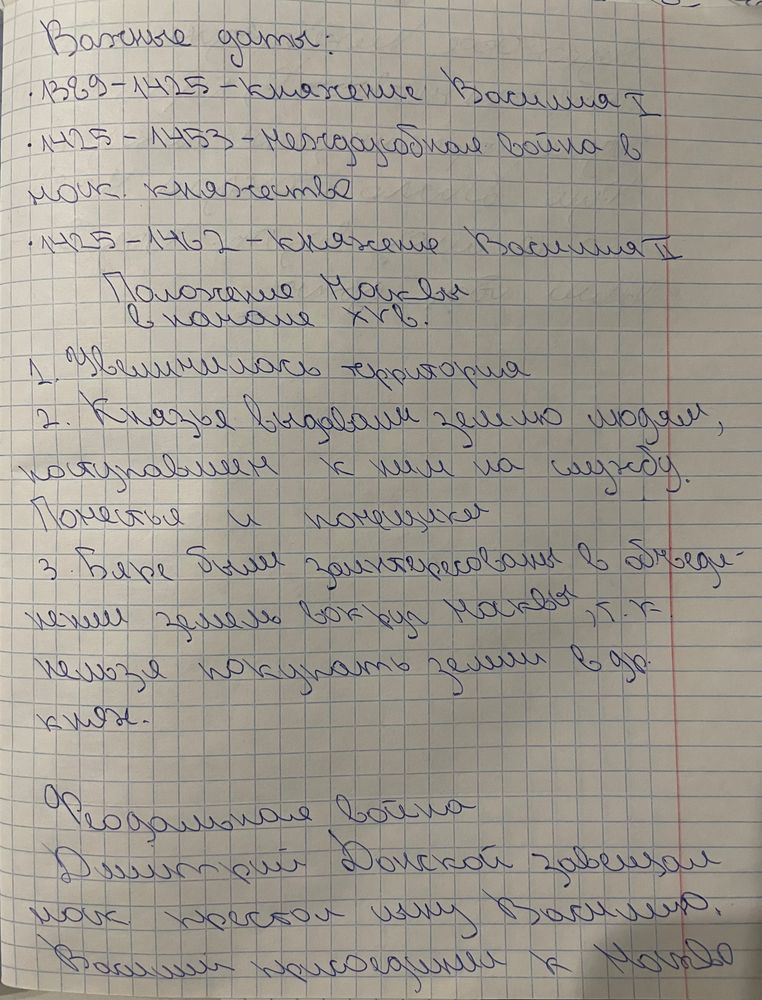 Важные даты:
·1389-1425-княжение Василия I
·1425-1453-междоусобная война в
моск. княжестве
·1425-1462-княжение Василия II
Положение Москвы
в начале XV в.
1. Увеличилась территория
2. Князья выдавали землю людям,
поступавшим к ним на службу.
Поместья и помещики
3. Бяре были заинтересованы в объеди-
нении земель вокруг Москвы, т.к.
нельзя покупать земли в др.
княж.
Феодальная война
Дмитрий Донской завещал
моск. престол сыну Василию.
Василий присоединил к Москве